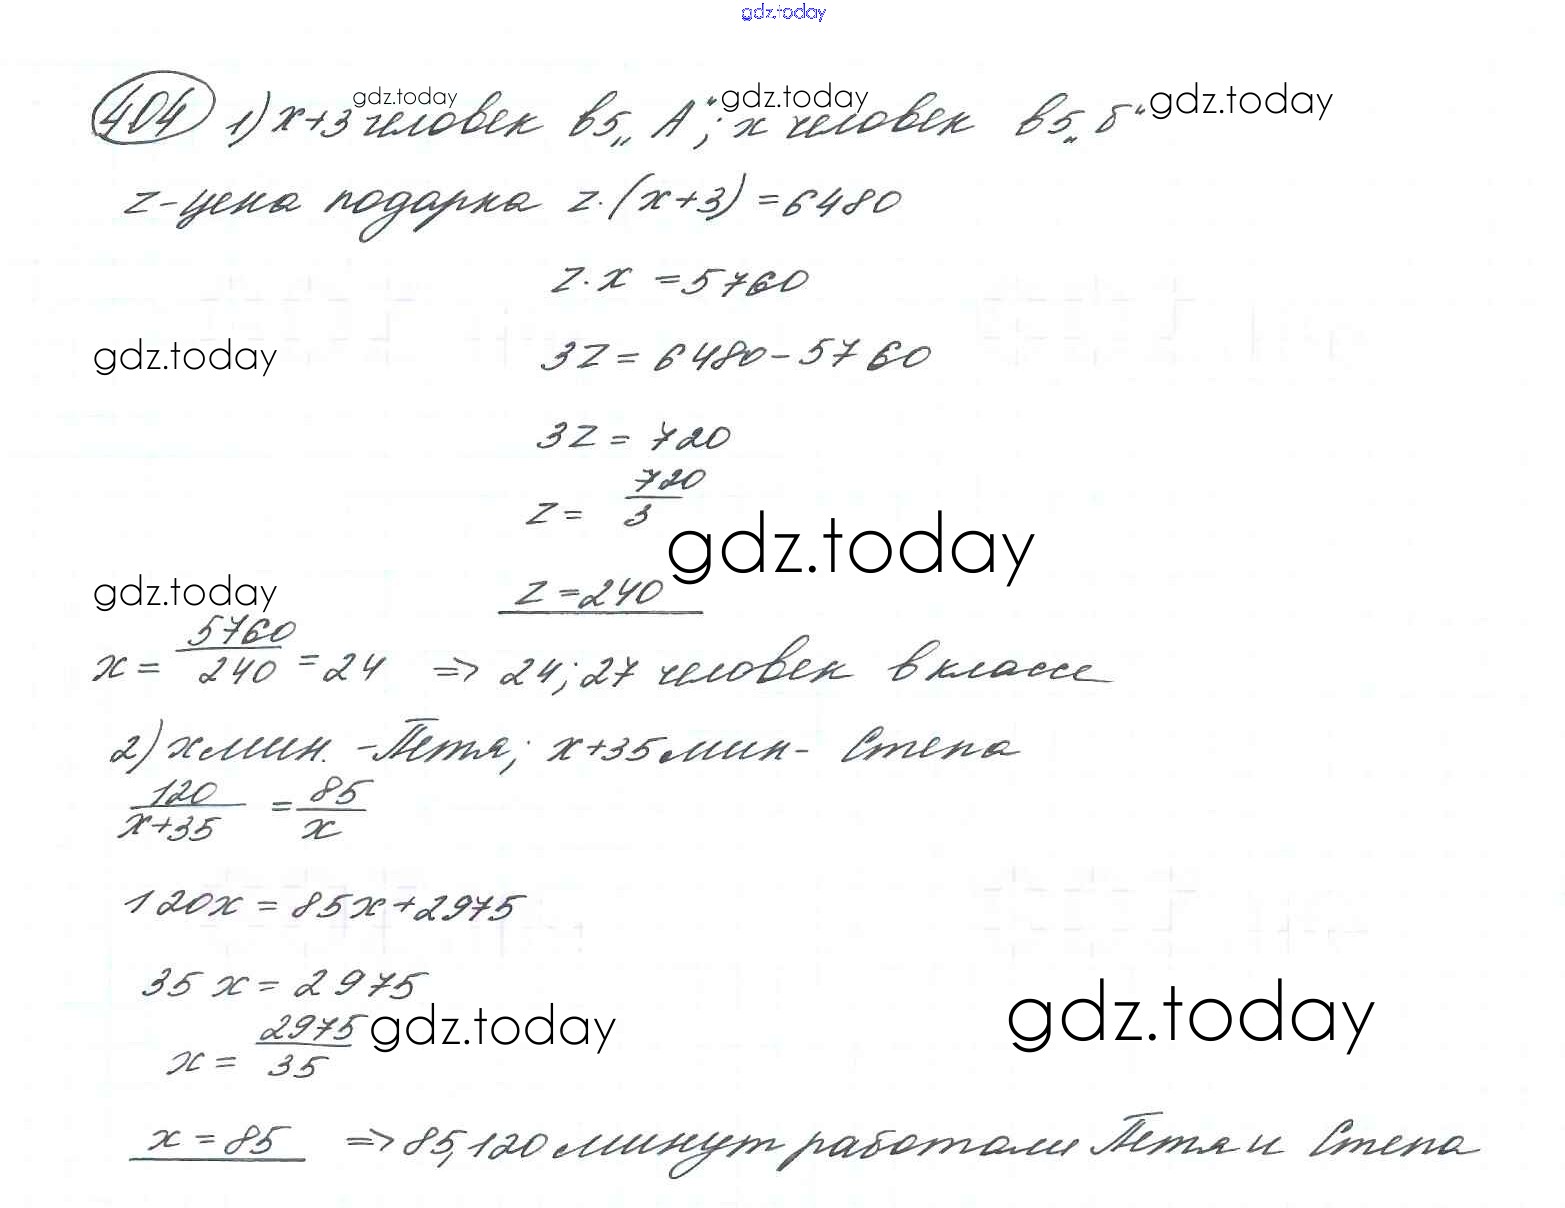 gdz.today
404 1) x+3 человек в 5 „А“; x человек в 5 „б“
gdz.today gdz.today gdz.today
z - цена подарка z·(x+3) = 6480
z·x = 5760
gdz.today 3z = 6480 - 5760
3z = 720
z = 720/3
gdz.today
gdz.today z = 240
x = 5760/240 = 24 => 24; 27 человек в классе
2) x мин. - Петя; x+35 мин - Степа
120/(x+35) = 85/x
120x = 85x + 2975
35x = 2975
x = 2975/35
gdz.today gdz.today
x = 85 => 85, 120 минут работали Петя и Степа